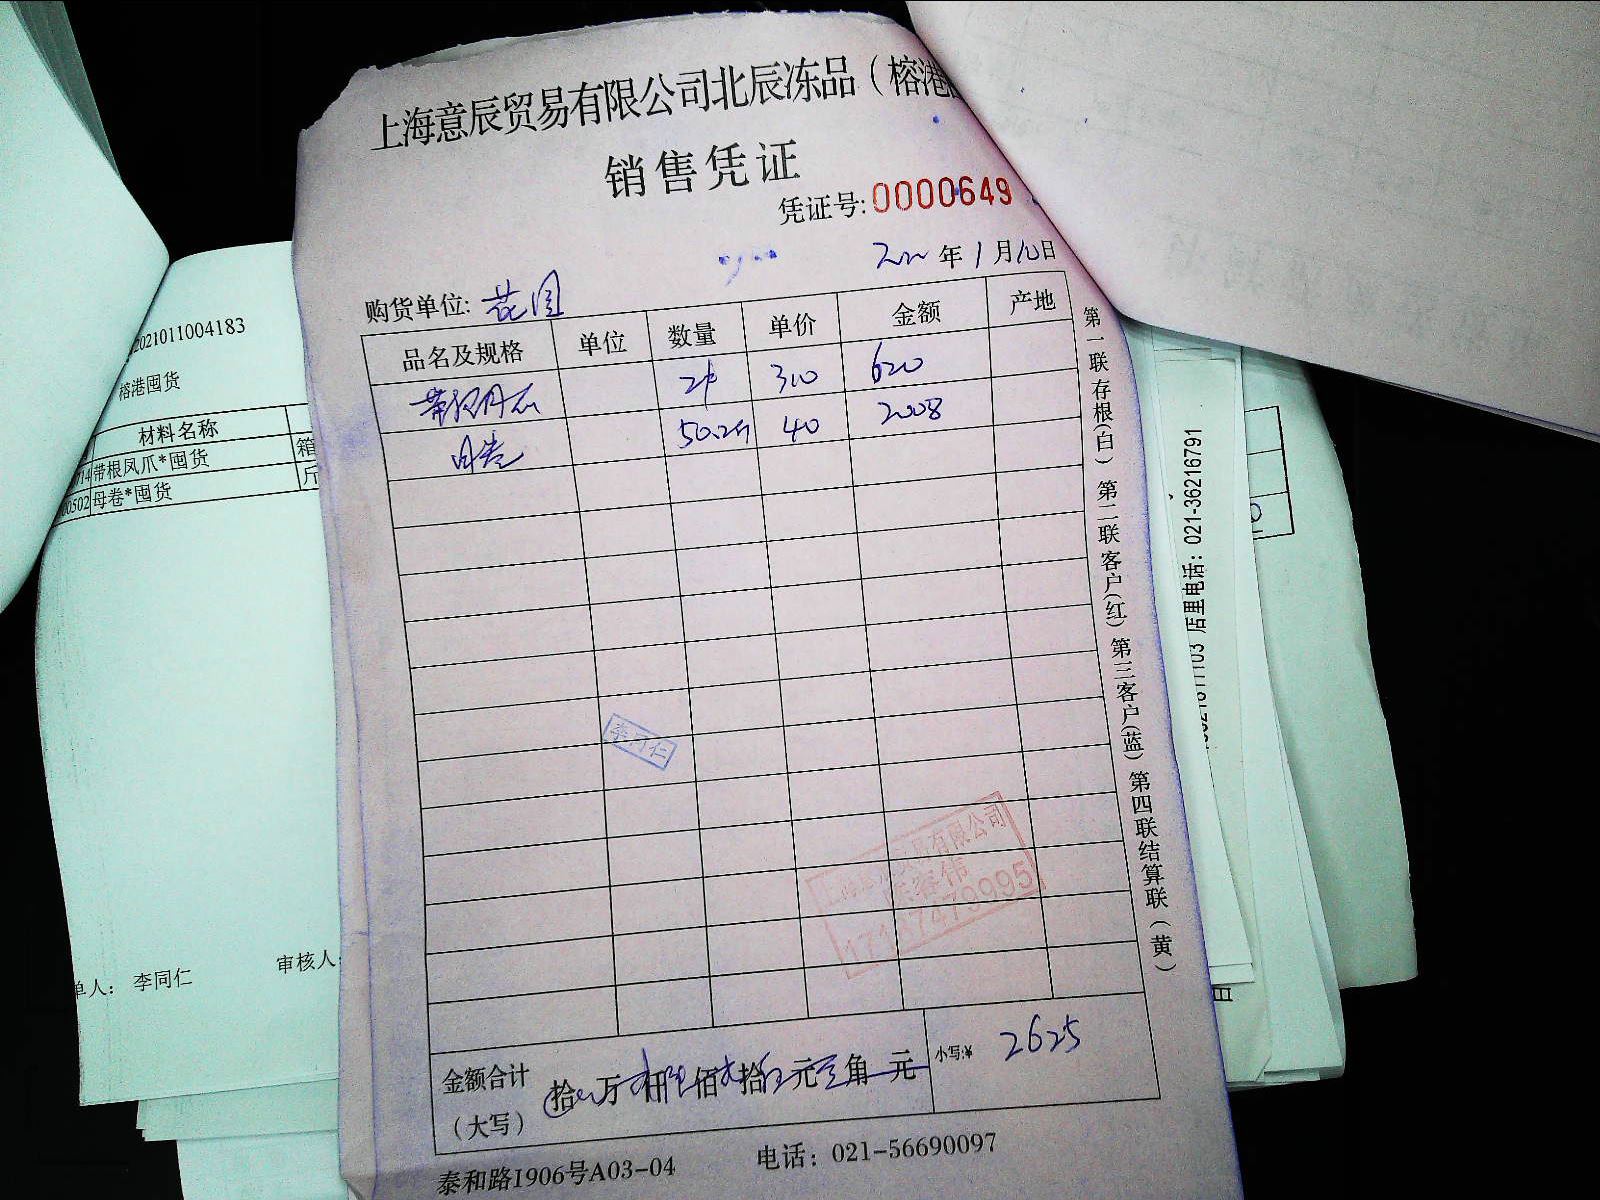 上海意辰贸易有限公司北辰冻品（榕港
销售凭证
凭证号:0000649
年1月10日
购货单位: 花园
品名及规格 单位 数量 单价 金额 产地
2件 310 620
50.2斤 40 2008
李同仁
有限公司
金额合计
（大写）
拾 万 仟 佰 拾 元 角 元
小写:¥ 2625
泰和路1906号A03-04 电话：021-56690097
第一联存根(白) 第二联客户(红) 第三客户(蓝) 第四联结算联（黄）
2021011004183
榕港囤货
材料名称
带根凤爪*囤货 箱
00502 母卷*囤货 斤
单人： 李同仁 审核人
店里电话：021-36216791